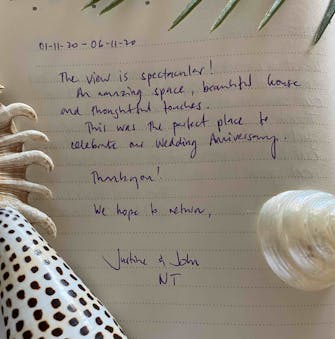 01-11-20 - 06-11-20
The view is spectacular!
An amazing space, beautiful house
and thoughtful touches.
This was the perfect place to
celebrate our Wedding Anniversary.
Thankyou!
We hope to return,
Justine & John
NT